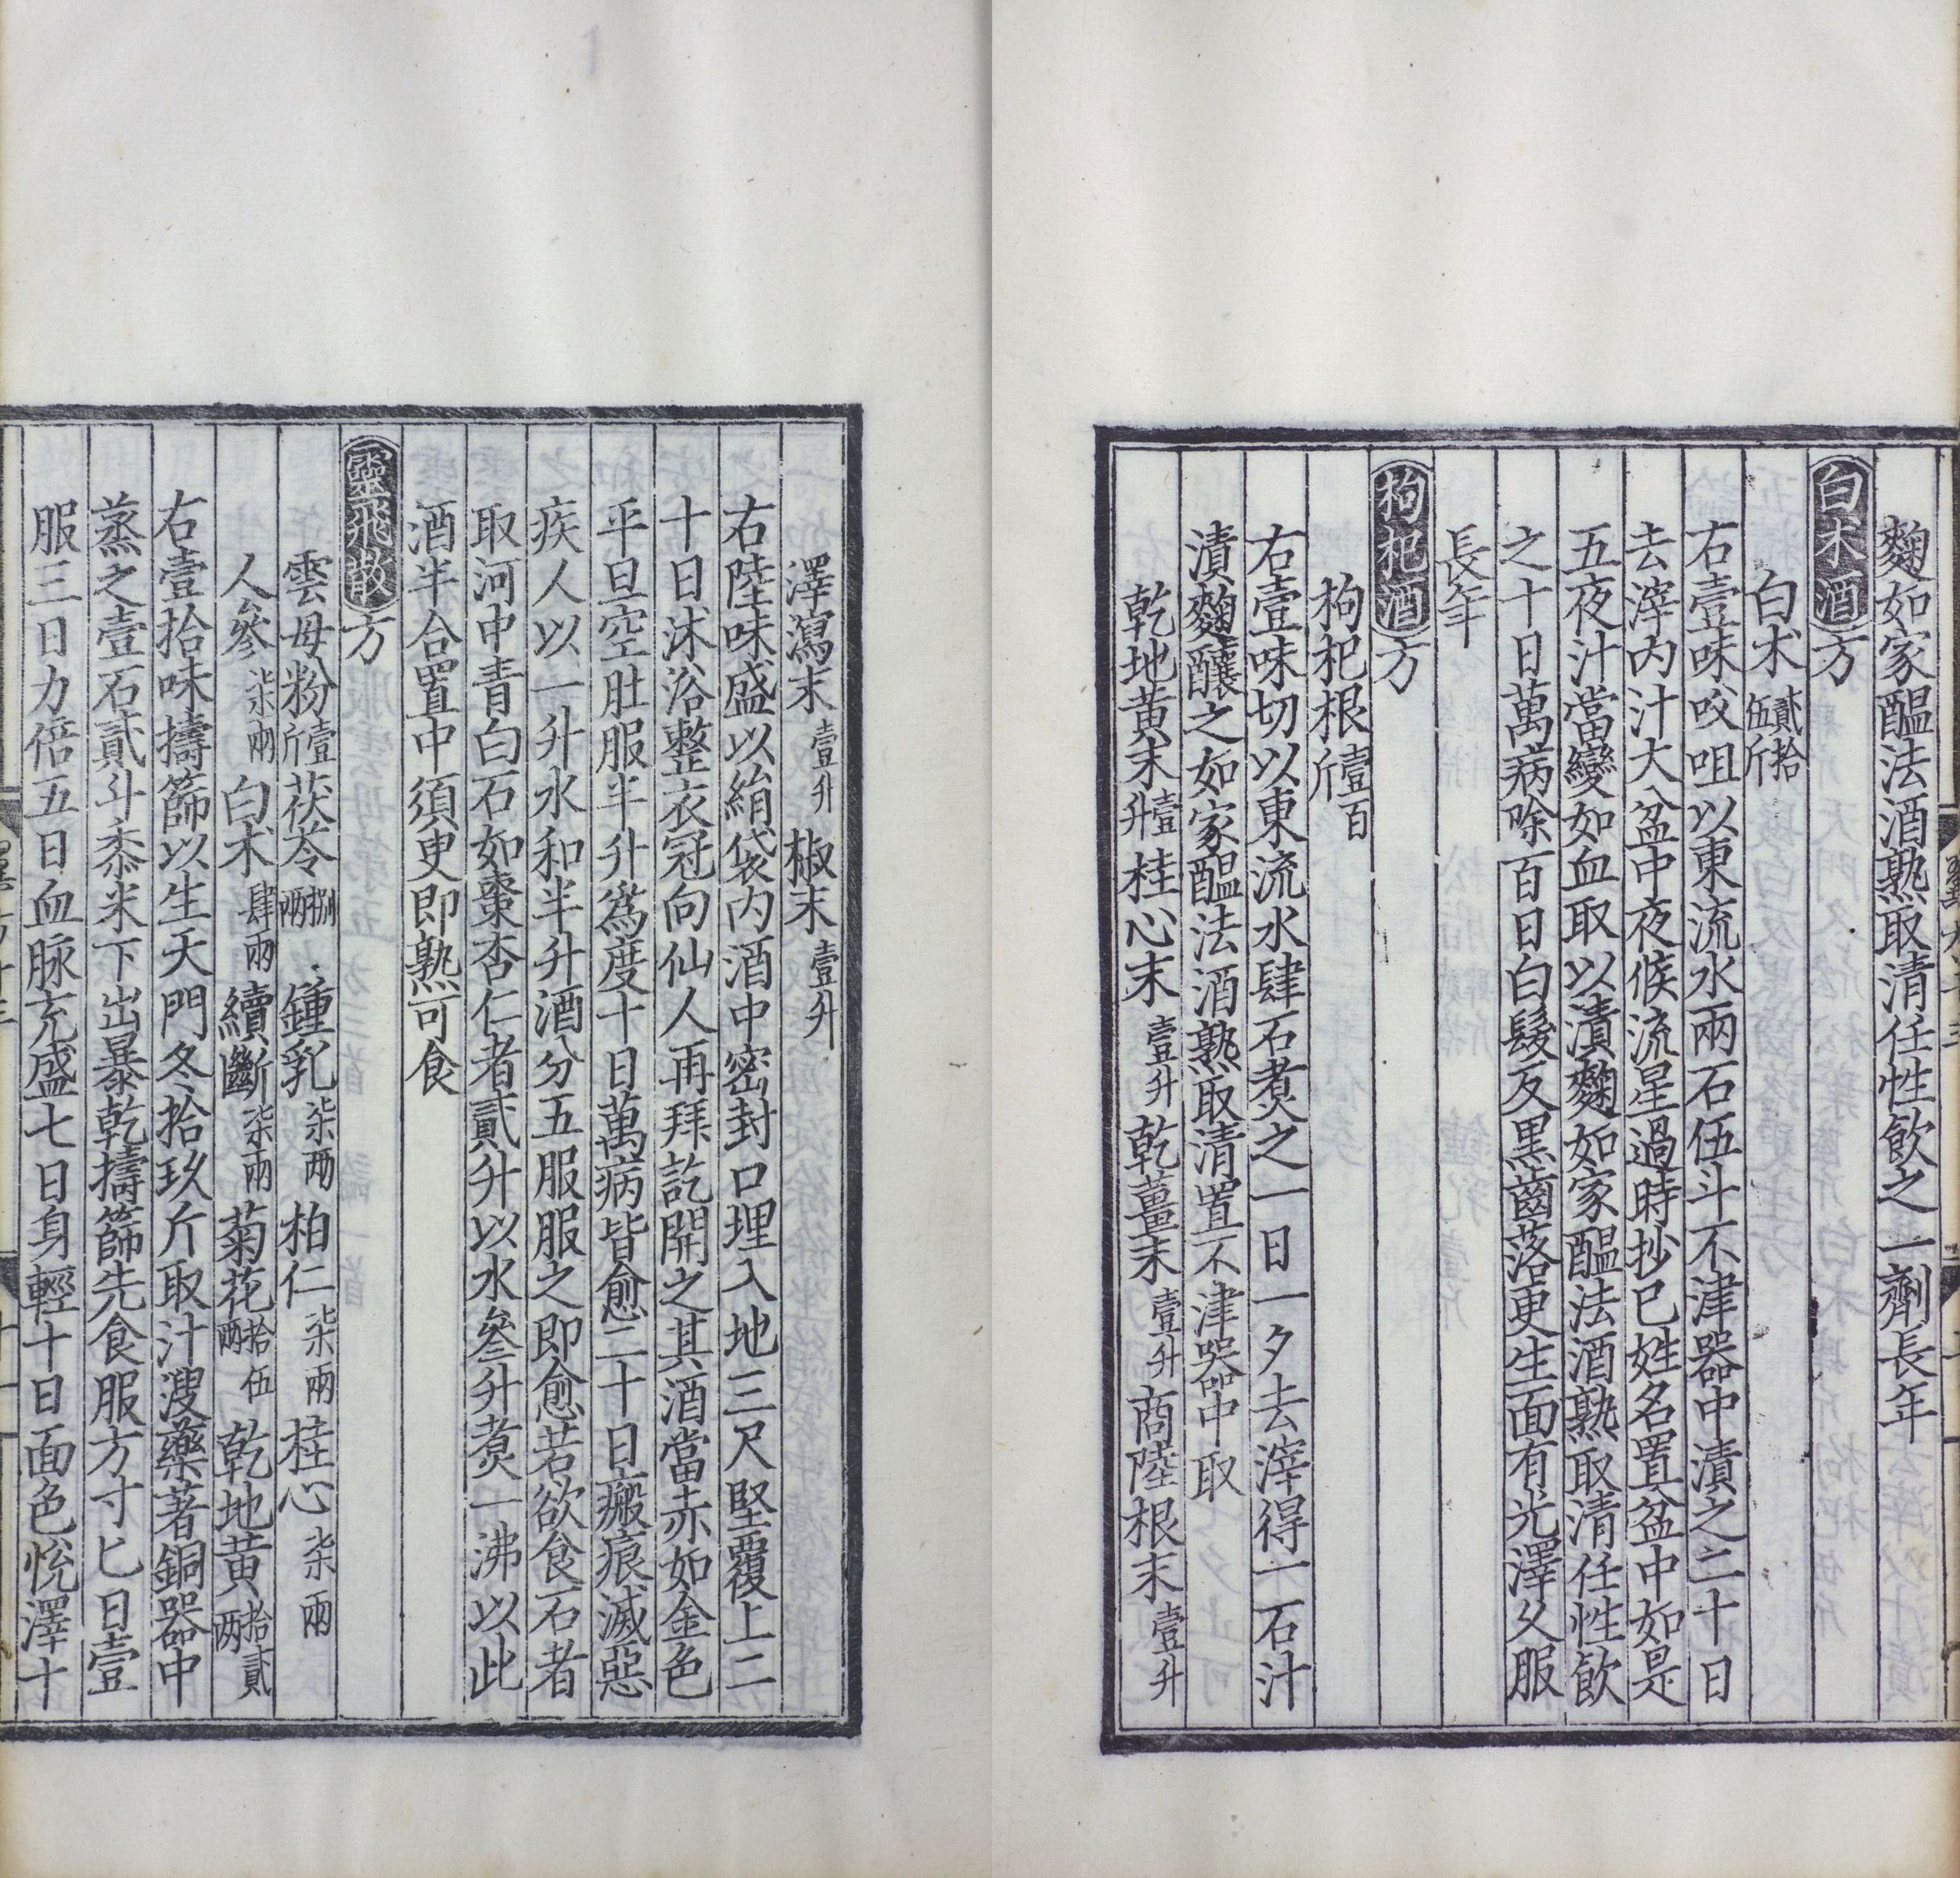 麴如家醖法酒熟取清任性飲之一劑長年
白朮酒方
白朮貳拾伍斤
右壹味㕮咀以東流水兩石伍斗不津器中漬之二十日
去滓内汁大盆中夜候流星過時抄已姓名置盆中如是
五夜汁當變如血取以漬麴如家醖法酒熟取清任性飲
之十日萬病除百日白髮反黒齒落更生面有光澤久服
長年
枸杞酒方
枸杞根壹百斤
右壹味切以東流水肆石煑之一日一夕去滓得一石汁
漬麴釀之如家醖法酒熟取清置不津器中取
乾地黄末壹升桂心末壹升乾薑末壹升商陸根末壹升
澤瀉末壹升椒末壹升
右陸味盛以絹袋内酒中密封口埋入地三尺堅覆上二
十日沐浴整衣冠向仙人再拜訖開之其酒當赤如金色
平旦空肚服半升爲度十日萬病皆愈二十日瘢痕滅惡
疾人以一升水和半升酒分五服服之即愈若欲食石者
取河中青白石如棗杏仁者貳升以水叅升煑一沸以此
酒半合置中須臾即熟可食
靈飛散方
雲母粉壹斤茯苓捌兩鍾乳柒兩柏仁柒兩桂心柒兩
人參柒兩白朮肆兩續斷柒兩菊花拾伍兩乾地黄拾貳兩
右壹拾味擣篩以生天門冬拾玖斤取汁溲藥著銅器中
蒸之壹石貳斗黍米下出暴乾擣篩先食服方寸匕日壹
服三日力倍五日血脉充盛七日身輕十日面色悅澤十